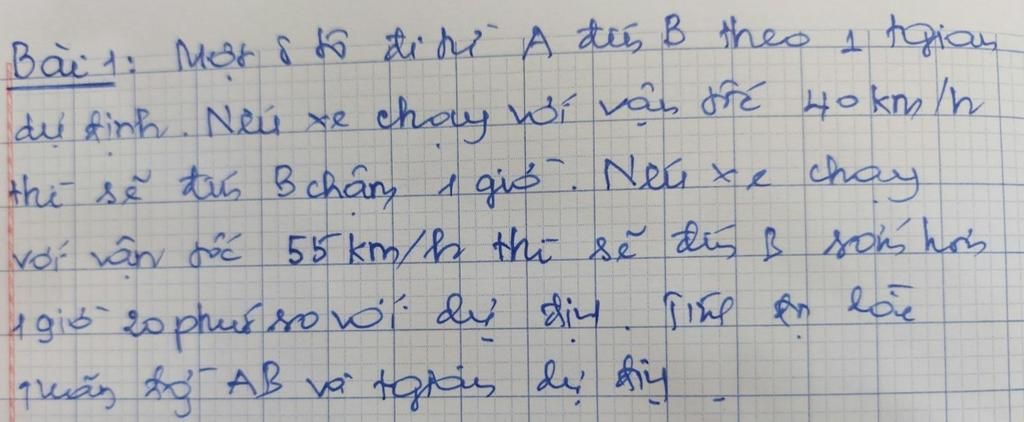 Bài 1: Một ô tô đi từ A đến B theo 1 tgian
dự định. Nếu xe chạy với vận tốc 40km/h
thì sẽ đến B chậm 1 giờ. Nếu xe chạy
với vận tốc 55km/h thì sẽ đến B sớm hơn
1 giờ 20 phút so với dự định. Tính
quãng đg AB và tgian dự định.